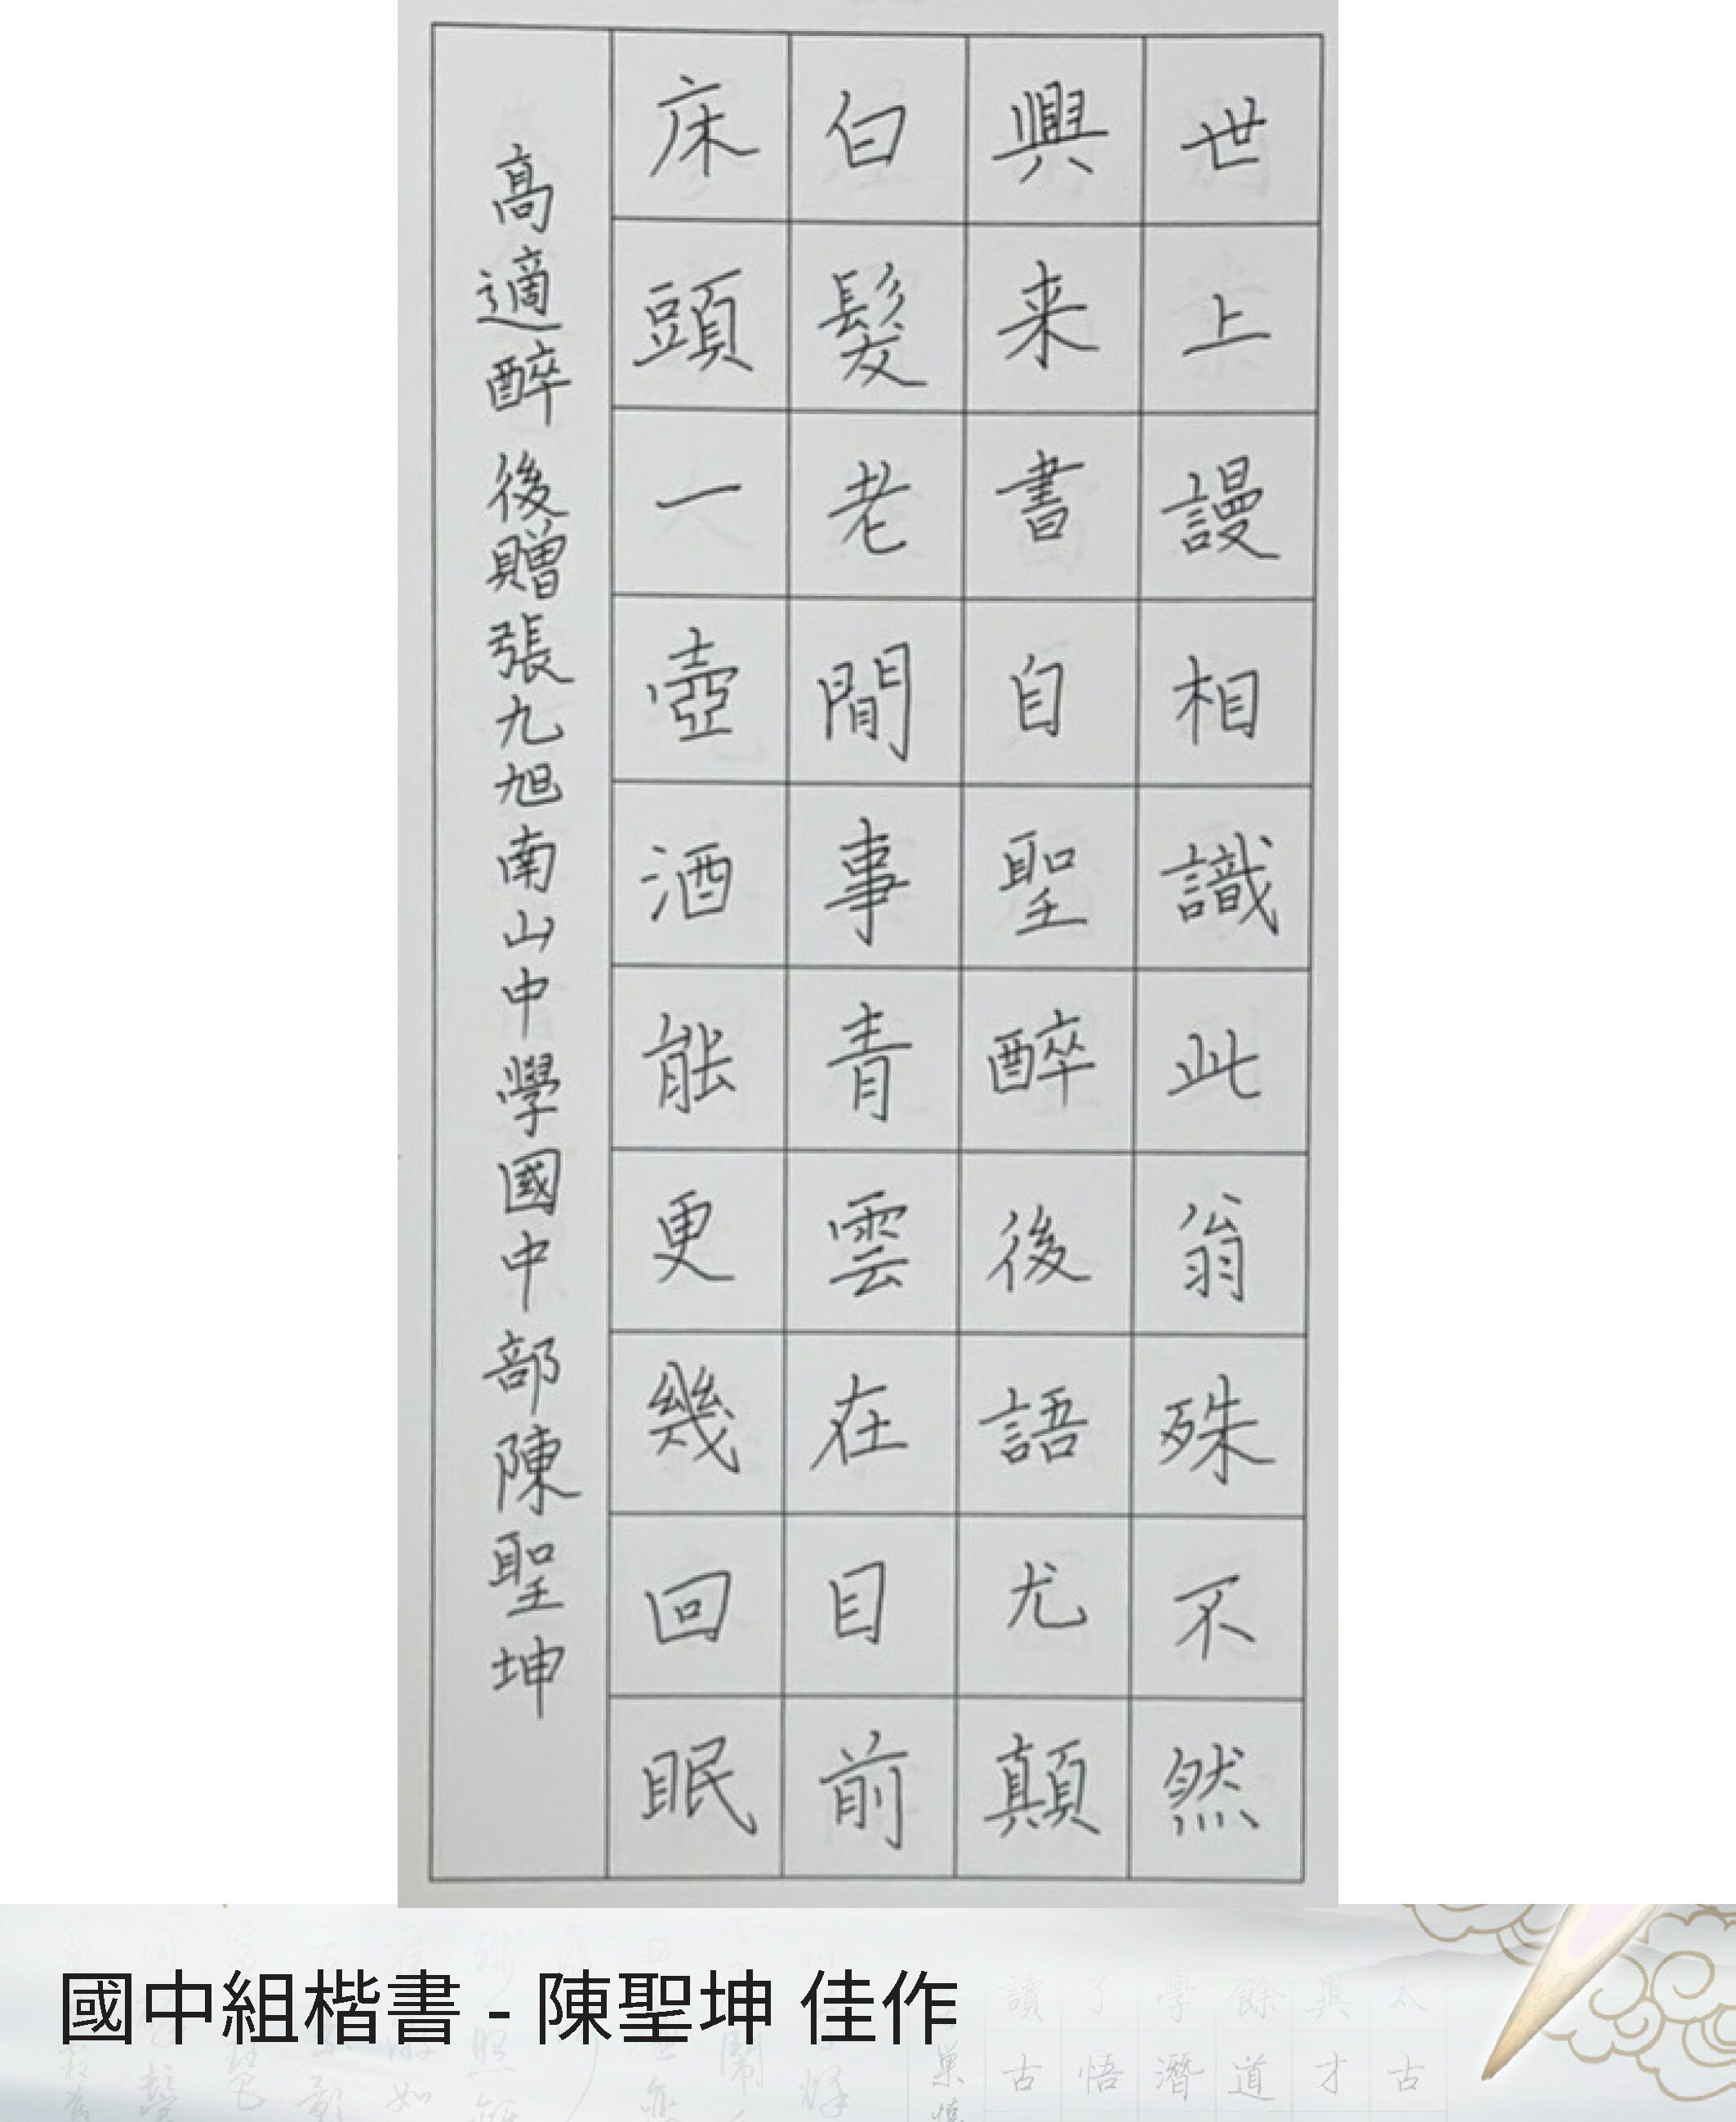 世上謾相識此翁殊不然
興来書自聖醉後語尤顛
白髮老閒事青雲在目前
床頭一壺酒能更幾回眠
高適醉後贈張九旭南山中學國中部陳聖坤
國中組楷書 - 陳聖坤 佳作
讀了學餘與太
古悟潛道才古